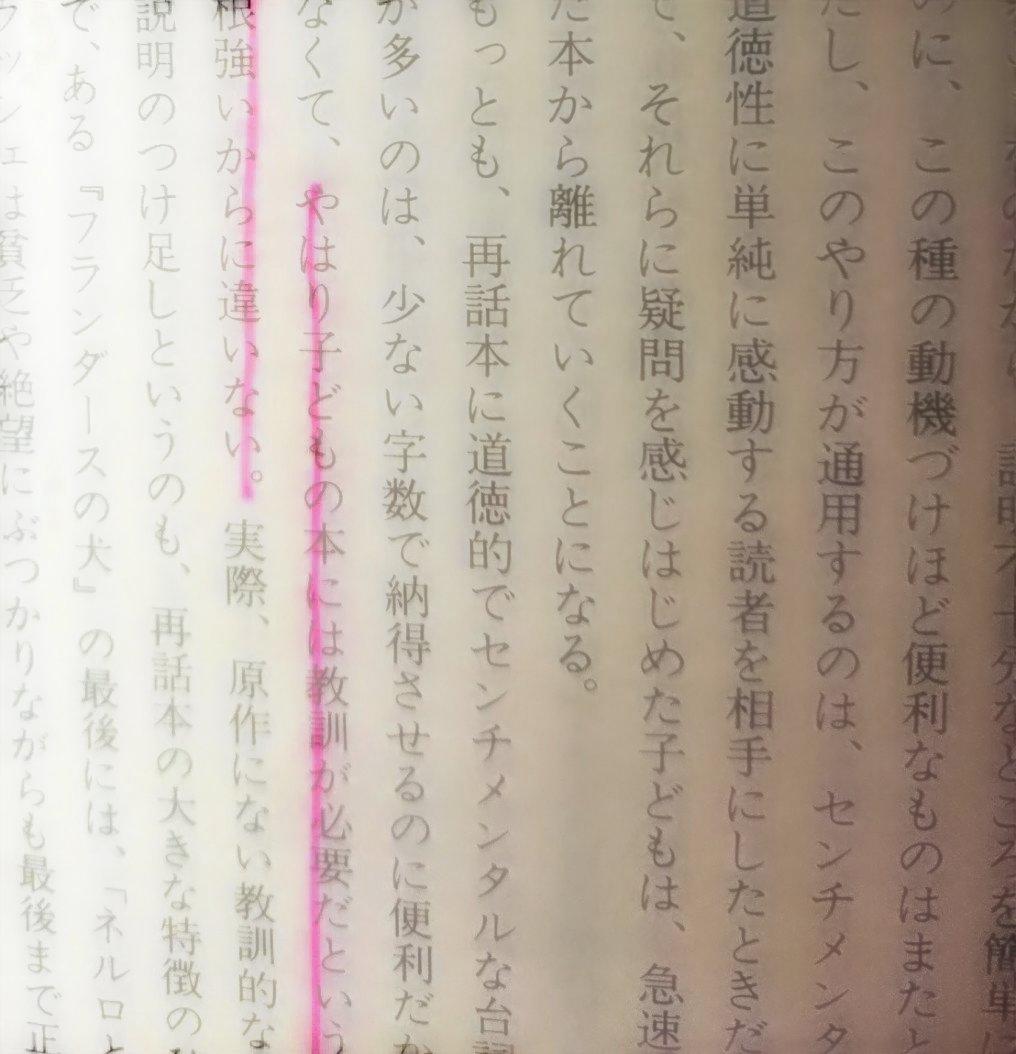 説明不十分なところを簡単に
のに、この種の動機づけほど便利なものはまたと
だし、このやり方が通用するのは、センチメンタ
道徳性に単純に感動する読者を相手にしたときだ
て、それらに疑問を感じはじめた子どもは、急速
た本から離れていくことになる。
もっとも、再話本に道徳的でセンチメンタルな台詞
が多いのは、少ない字数で納得させるのに便利だか
なくて、やはり子どもの本には教訓が必要だという
根強いからに違いない。実際、原作にない教訓的な
説明のつけ足しというのも、再話本の大きな特徴の
で、ある『フランダースの犬』の最後には、「ネルロと
は貧乏や絶望にぶつかりながらも最後まで正